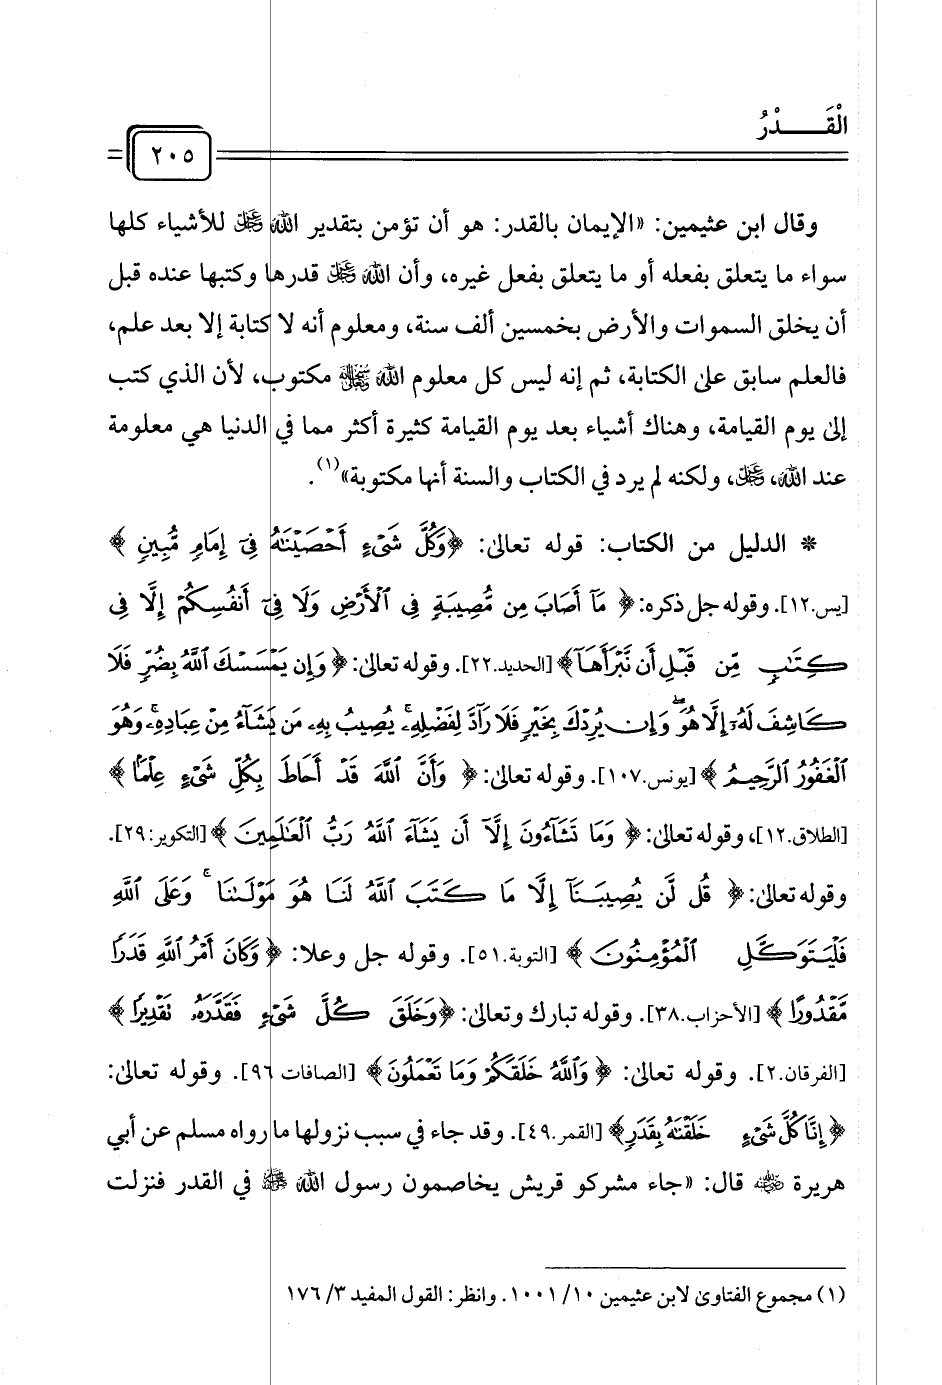 الْقَـــــدْرُ
٢٠٥
وقال ابن عثيمين: «الإيمان بالقدر: هو أن تؤمن بتقدير الله ﷿ للأشياء كلها
سواء ما يتعلق بفعله أو ما يتعلق بفعل غيره، وأن الله ﷿ قدرها وكتبها عنده قبل
أن يخلق السموات والأرض بخمسين ألف سنة، ومعلوم أنه لا كتابة إلا بعد علم،
فالعلم سابق على الكتابة، ثم إنه ليس كل معلوم الله ﷾ مكتوب، لأن الذي كتب
إلى يوم القيامة، وهناك أشياء بعد يوم القيامة كثيرة أكثر مما في الدنيا هي معلومة
عند الله، ﷿، ولكنه لم يرد في الكتاب والسنة أنها مكتوبة»(١).
* الدليل من الكتاب: قوله تعالى: ﴿وَكُلَّ شَيْءٍ أَحْصَيْنَاهُ فِي إِمَامٍ مُّبِينٍ﴾
[يس.١٢]. وقوله جل ذكره: ﴿مَا أَصَابَ مِن مُّصِيبَةٍ فِي الْأَرْضِ وَلَا فِي أَنفُسِكُمْ إِلَّا فِي
كِتَابٍ مِّن قَبْلِ أَن نَّبْرَأَهَا﴾ [الحديد.٢٢]. وقوله تعالى: ﴿وَإِن يَمْسَسْكَ اللَّهُ بِضُرٍّ فَلَا
كَاشِفَ لَهُ إِلَّا هُوَ ۖ وَإِن يُرِدْكَ بِخَيْرٍ فَلَا رَادَّ لِفَضْلِهِ ۚ يُصِيبُ بِهِ مَن يَشَاءُ مِنْ عِبَادِهِ ۚ وَهُوَ
الْغَفُورُ الرَّحِيمُ﴾ [يونس.١٠٧]. وقوله تعالى: ﴿وَأَنَّ اللَّهَ قَدْ أَحَاطَ بِكُلِّ شَيْءٍ عِلْمًا﴾
[الطلاق.١٢]، وقوله تعالى: ﴿وَمَا تَشَاءُونَ إِلَّا أَن يَشَاءَ اللَّهُ رَبُّ الْعَالَمِينَ﴾ [التكوير:٢٩].
وقوله تعالى: ﴿قُل لَّن يُصِيبَنَا إِلَّا مَا كَتَبَ اللَّهُ لَنَا هُوَ مَوْلَانَا ۚ وَعَلَى اللَّهِ
فَلْيَتَوَكَّلِ الْمُؤْمِنُونَ﴾ [التوبة.٥١]. وقوله جل وعلا: ﴿وَكَانَ أَمْرُ اللَّهِ قَدَرًا
مَّقْدُورًا﴾ [الأحزاب.٣٨]. وقوله تبارك وتعالى: ﴿وَخَلَقَ كُلَّ شَيْءٍ فَقَدَّرَهُ تَقْدِيرًا﴾
[الفرقان.٢]. وقوله تعالى: ﴿وَاللَّهُ خَلَقَكُمْ وَمَا تَعْمَلُونَ﴾ [الصافات ٩٦]. وقوله تعالى:
﴿إِنَّا كُلَّ شَيْءٍ خَلَقْنَاهُ بِقَدَرٍ﴾ [القمر.٤٩]. وقد جاء في سبب نزولها ما رواه مسلم عن أبي
هريرة ﵁ قال: «جاء مشركو قريش يخاصمون رسول الله ﷺ في القدر فنزلت
(١) مجموع الفتاوى لابن عثيمين ١٠/ ١٠٠١. وانظر: القول المفيد ٣/ ١٧٦